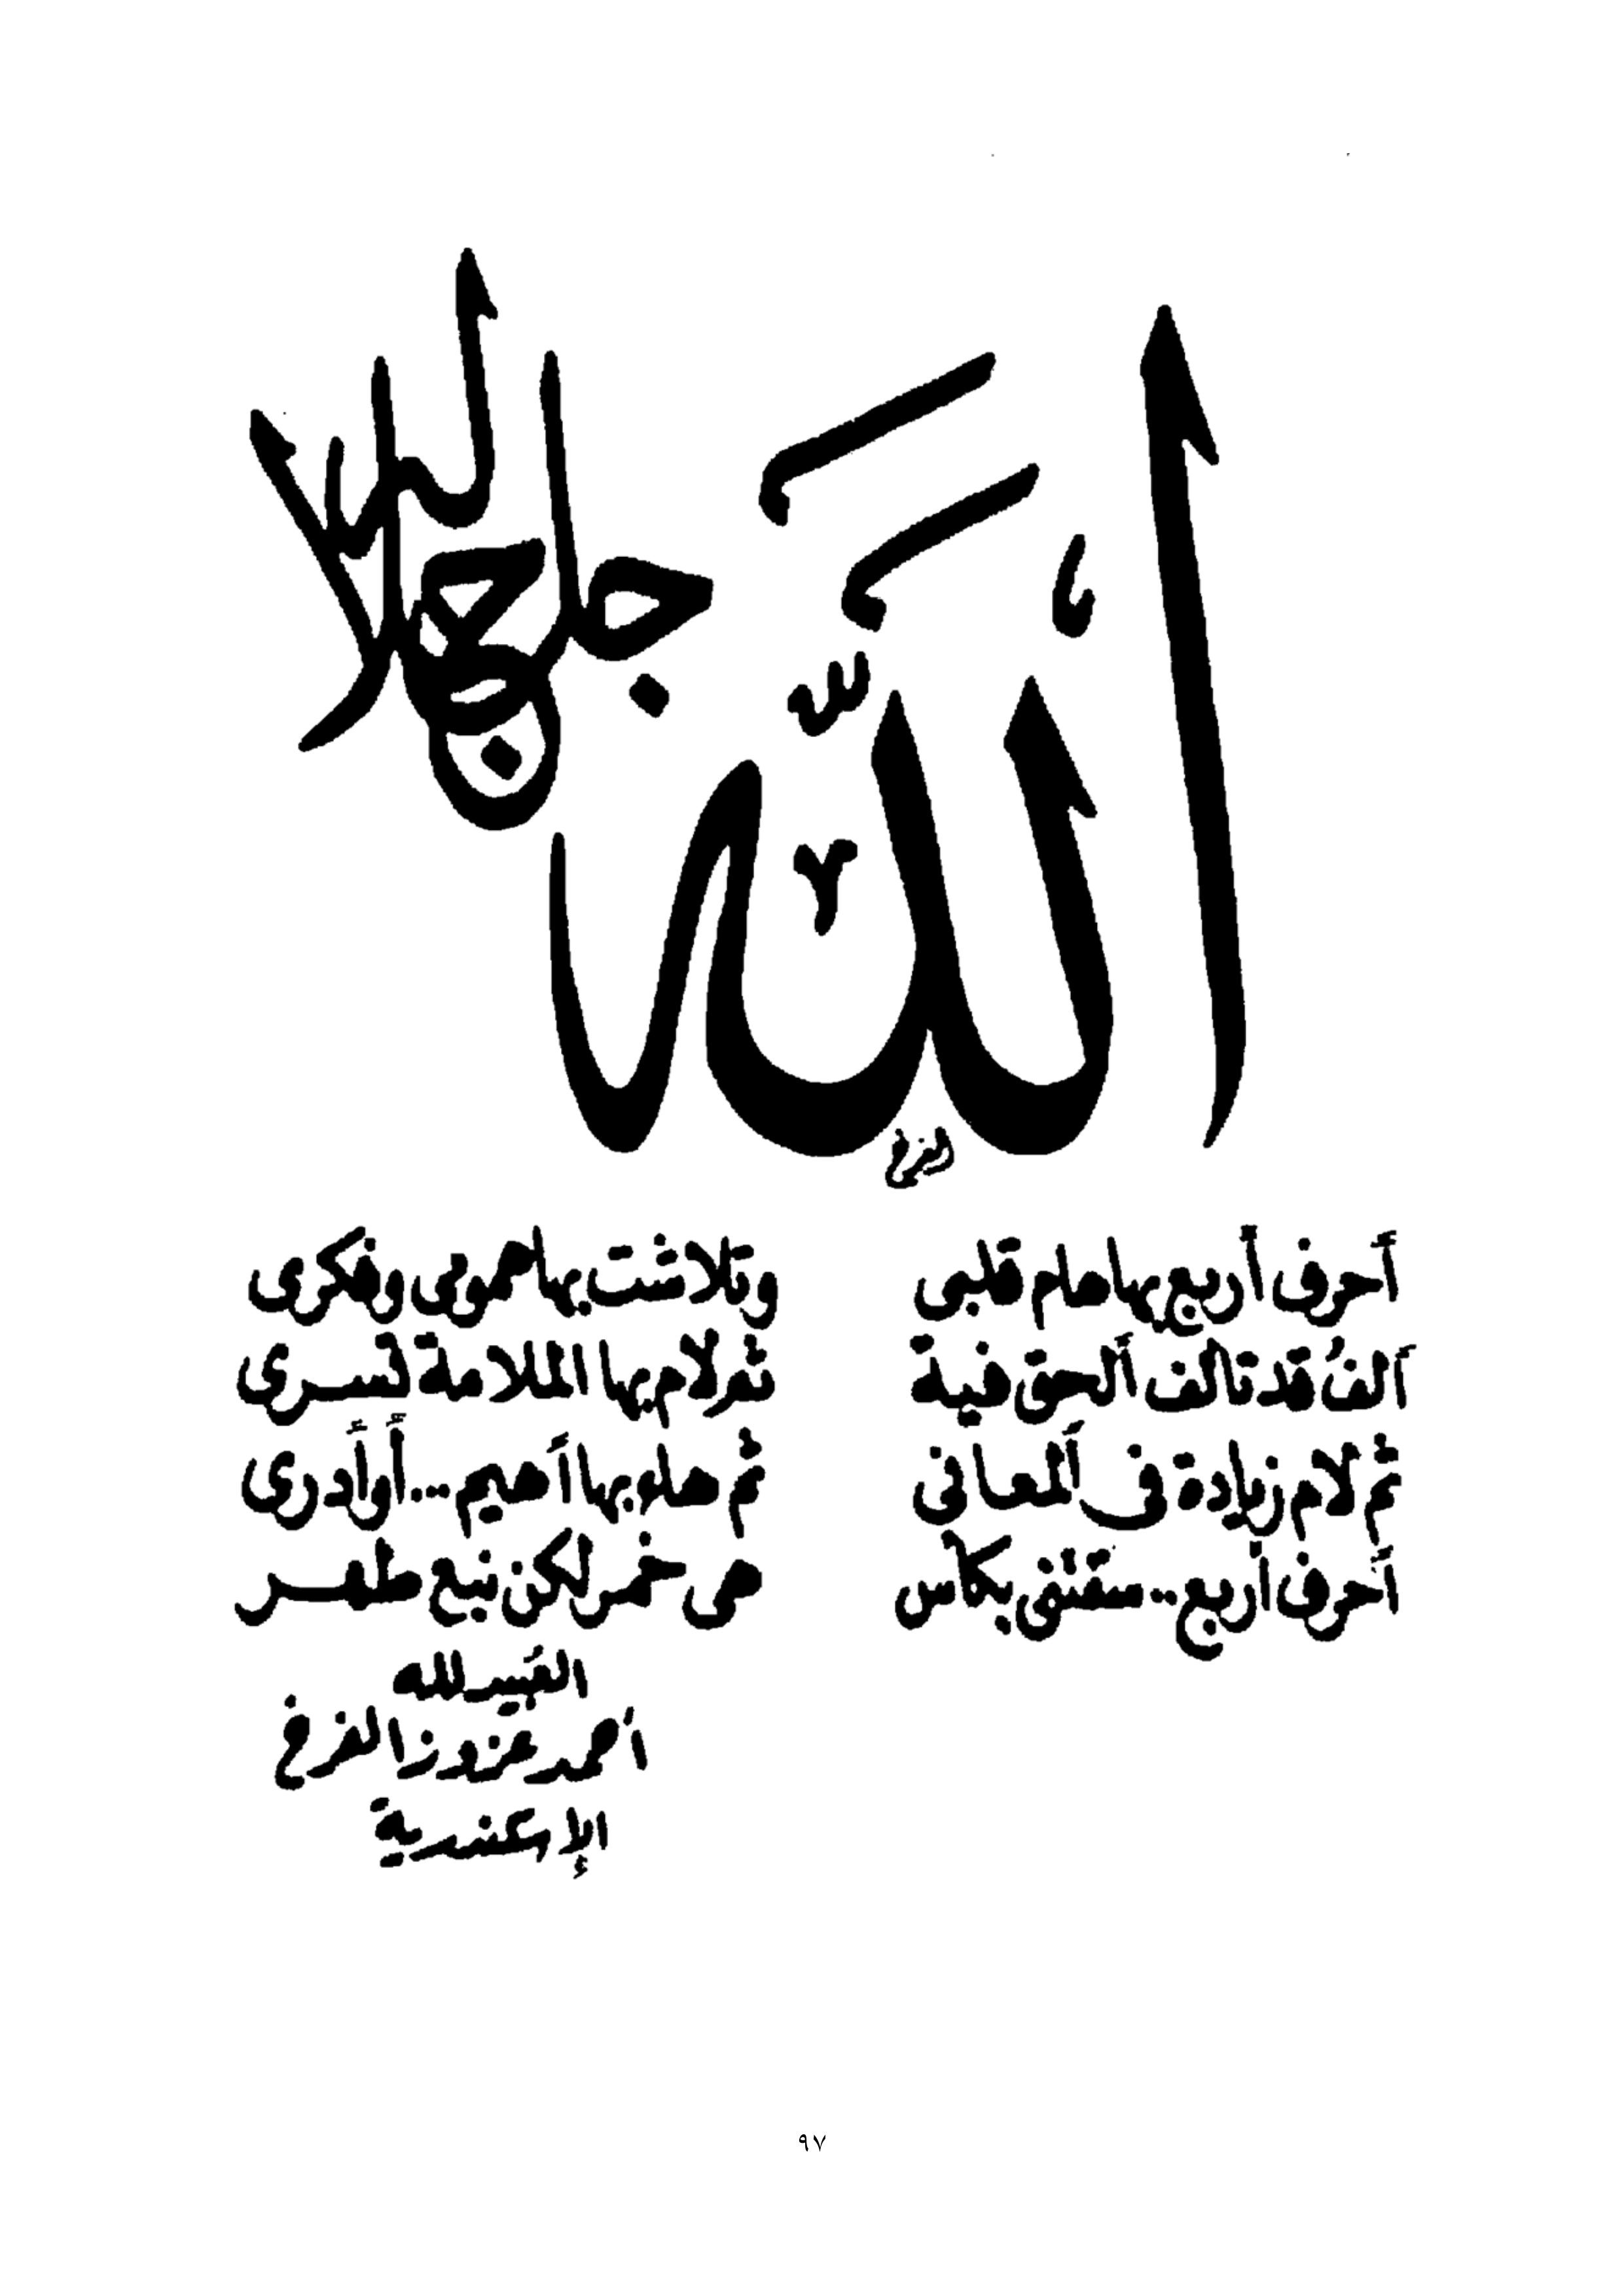 الله جل جلاله
أحرف أربع بها هام قلبى وتلاشت بها همومى وفكرى
ألفُ قد تألف ألحق فية ثم لام بها الملامة تسرى
ثم لام زيادة فى ألمعانى ثم هاء بها أهيم... أو أدرى
أحرف أربع.. ستنتقى بكأس هى خمر لكن نبع طهر
العُبيد لله
أحمد
الإسكندرية
٩٧